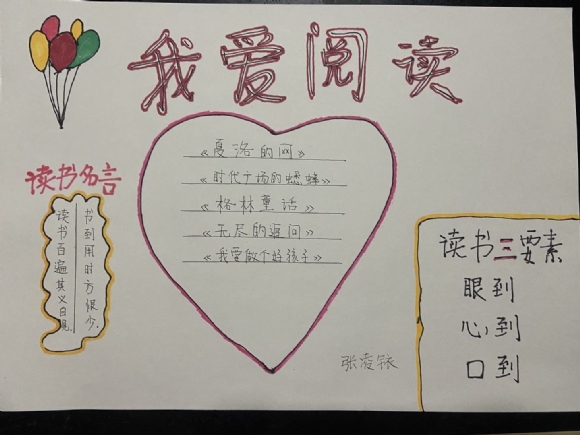 我爱阅读
《夏洛的网》
《时代广场的蟋蟀》
《格林童话》
《无尽的追问》
《我要做个好孩子》
读书名言
书到用时方恨少.
读书百遍其义自见.
读书三要素
眼到
心到
口到